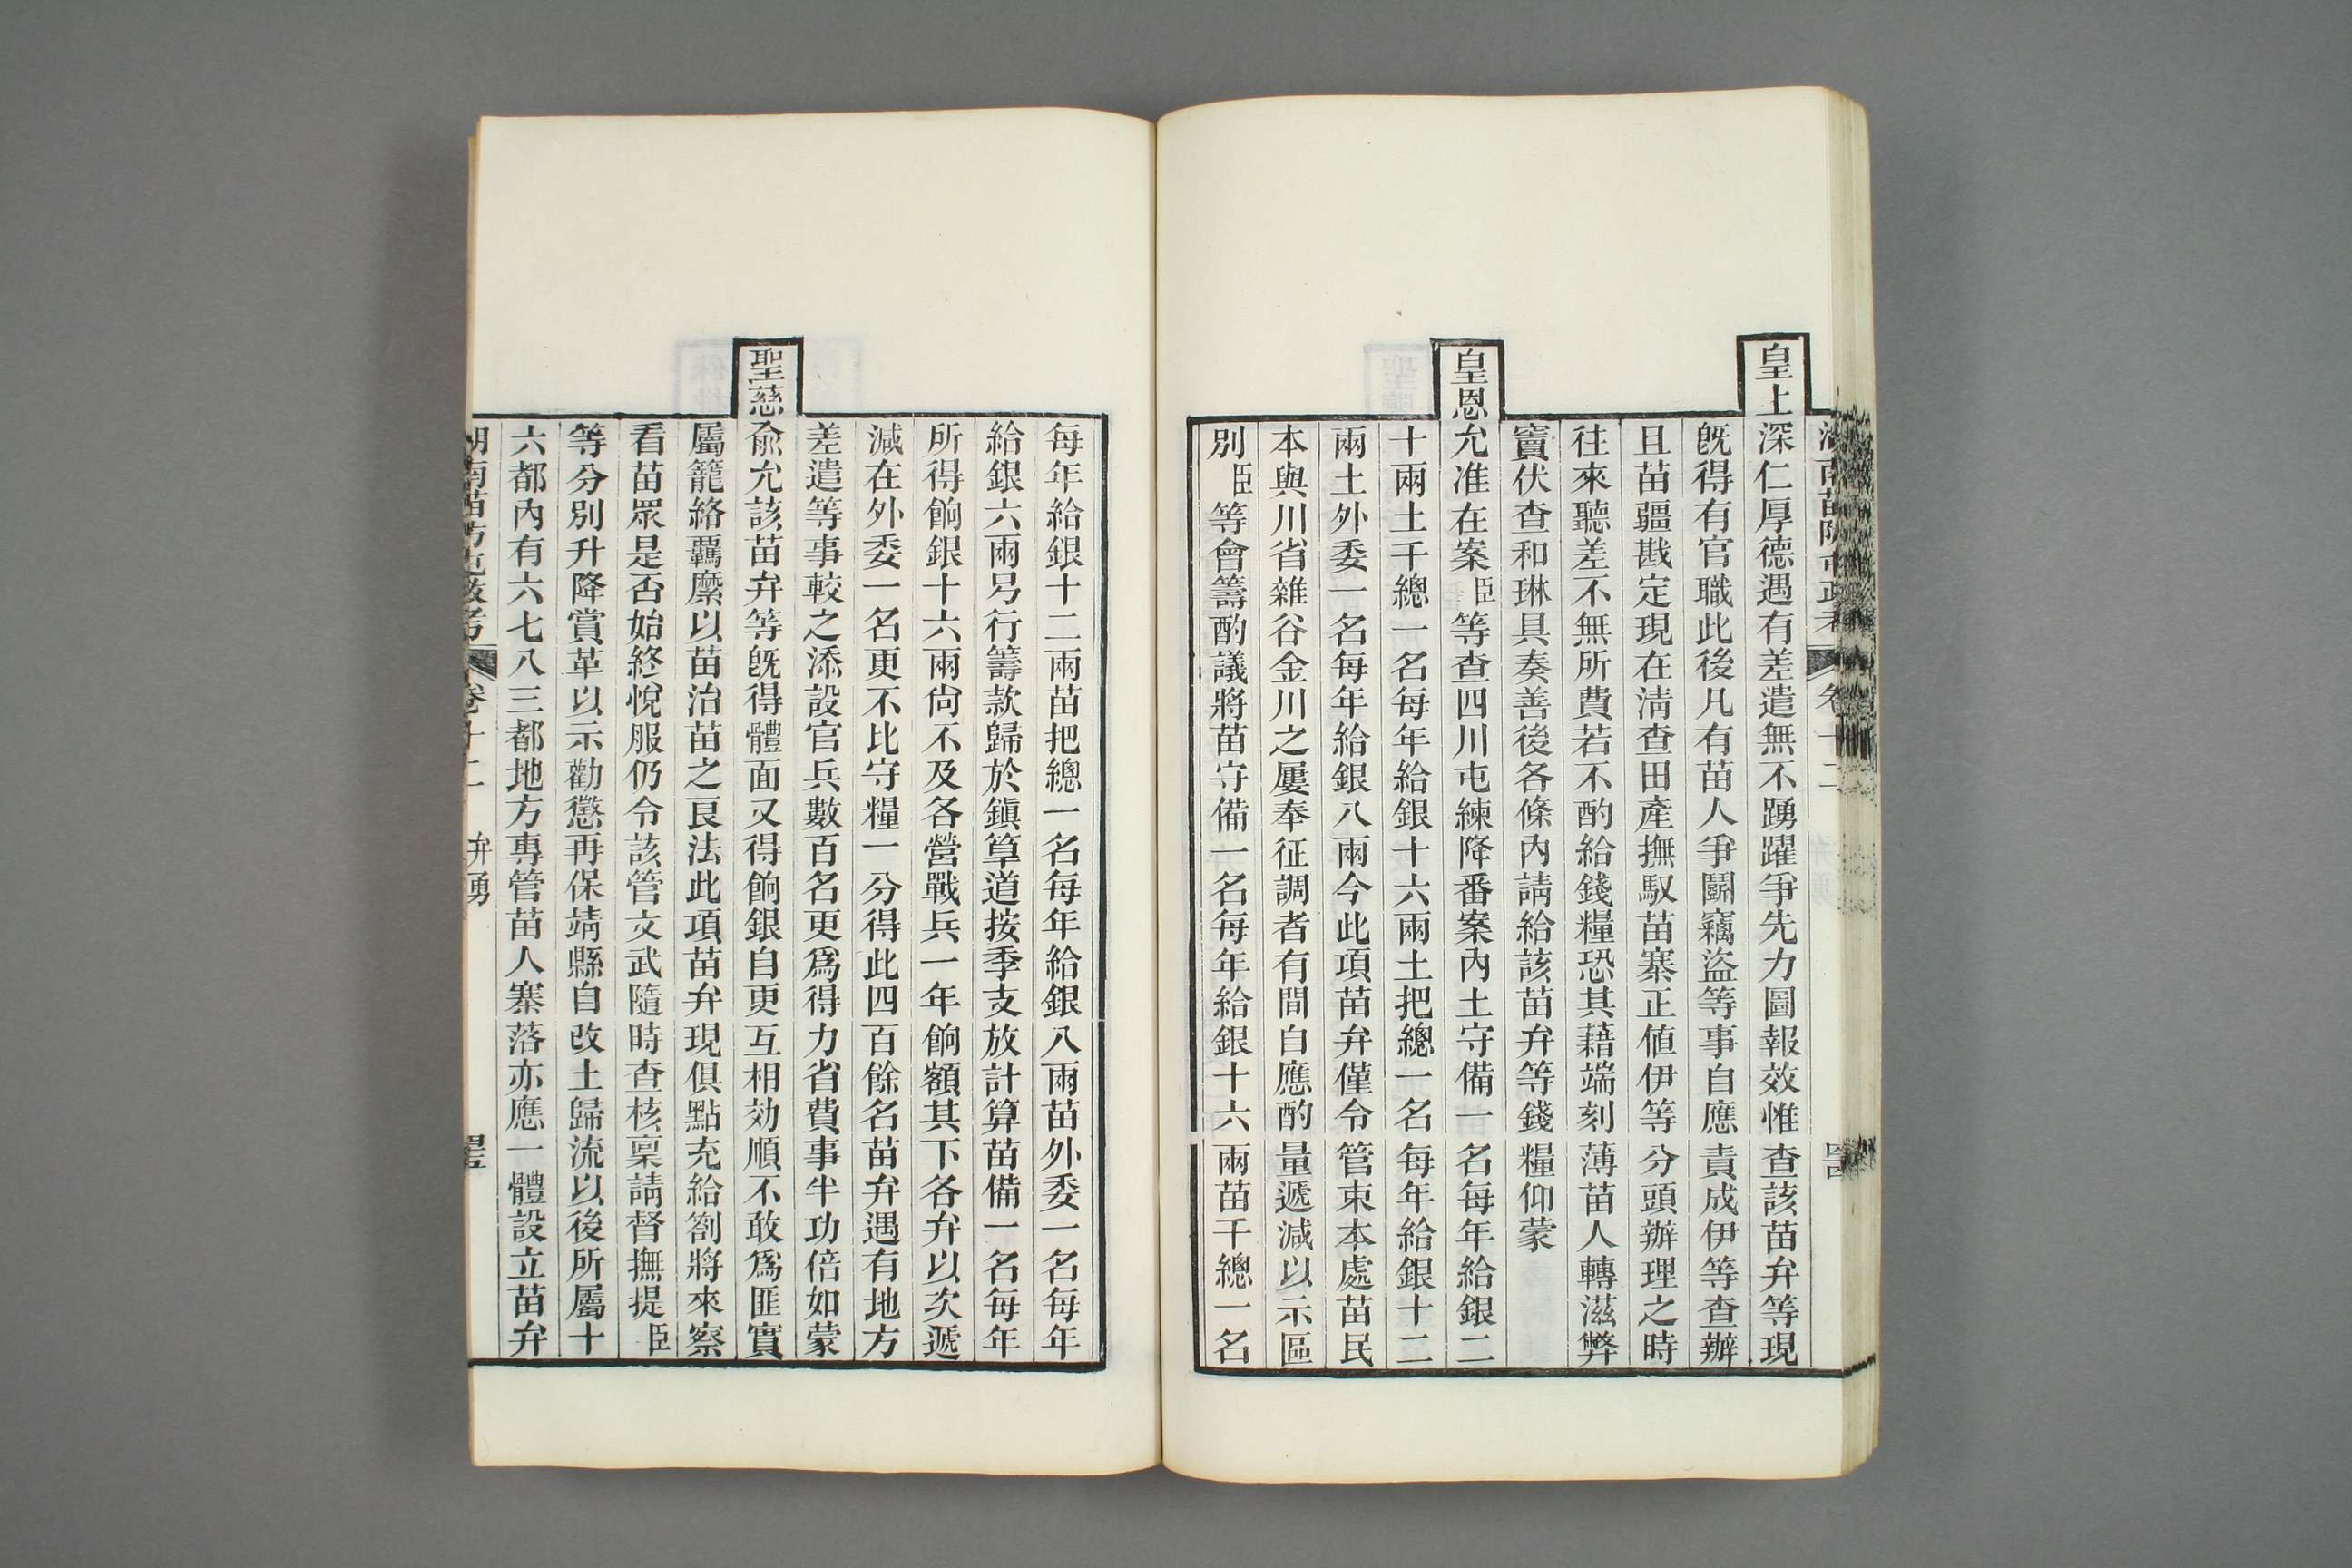 皇上深仁厚德遇有差遣無不踴躍爭先力圖報效惟查該苗弁等現
旣得有官職此後凡有苗人爭鬭竊盜等事自應責成伊等查辦
且苗疆戡定現在淸查田產撫馭苗寨正値伊等分頭辦理之時
往來聽差不無所費若不酌給錢糧恐其藉端刻薄苗人轉滋弊
竇伏查和琳具奏善後各條內請給該苗弁等錢糧仰蒙
皇恩允准在案臣等查四川屯練降番案內土守備一名每年給銀二
十兩土千總一名每年給銀十六兩土把總一名每年給銀十二
兩土外委一名每年給銀八兩今此項苗弁僅令管束本處苗民
本與川省雜谷金川之屢奉征調者有間自應酌量遞減以示區
別臣等會籌酌議將苗守備一名每年給銀十六兩苗千總一名
每年給銀十二兩苗把總一名每年給銀八兩苗外委一名每年
給銀六兩另行籌款歸於鎭筸道按季支放計算苗備一名每年
所得餉銀十六兩尙不及各營戰兵一年餉額其下各弁以次遞
減在外委一名更不比守糧一分得此四百餘名苗弁遇有地方
差遣等事較之添設官兵數百名更爲得力省費事半功倍如蒙
聖慈兪允該苗弁等旣得體面又得餉銀自更互相効順不敢爲匪實
屬籠絡覊縻以苗治苗之良法此項苗弁現俱點充給劄將來察
看苗眾是否始終悅服仍令該管文武隨時查核稟請督撫提臣
等分別升降賞革以示勸懲再保靖縣自改土歸流以後所屬十
六都內有六七八三都地方專管苗人寨落亦應一體設立苗弁
卷十二 弁勇